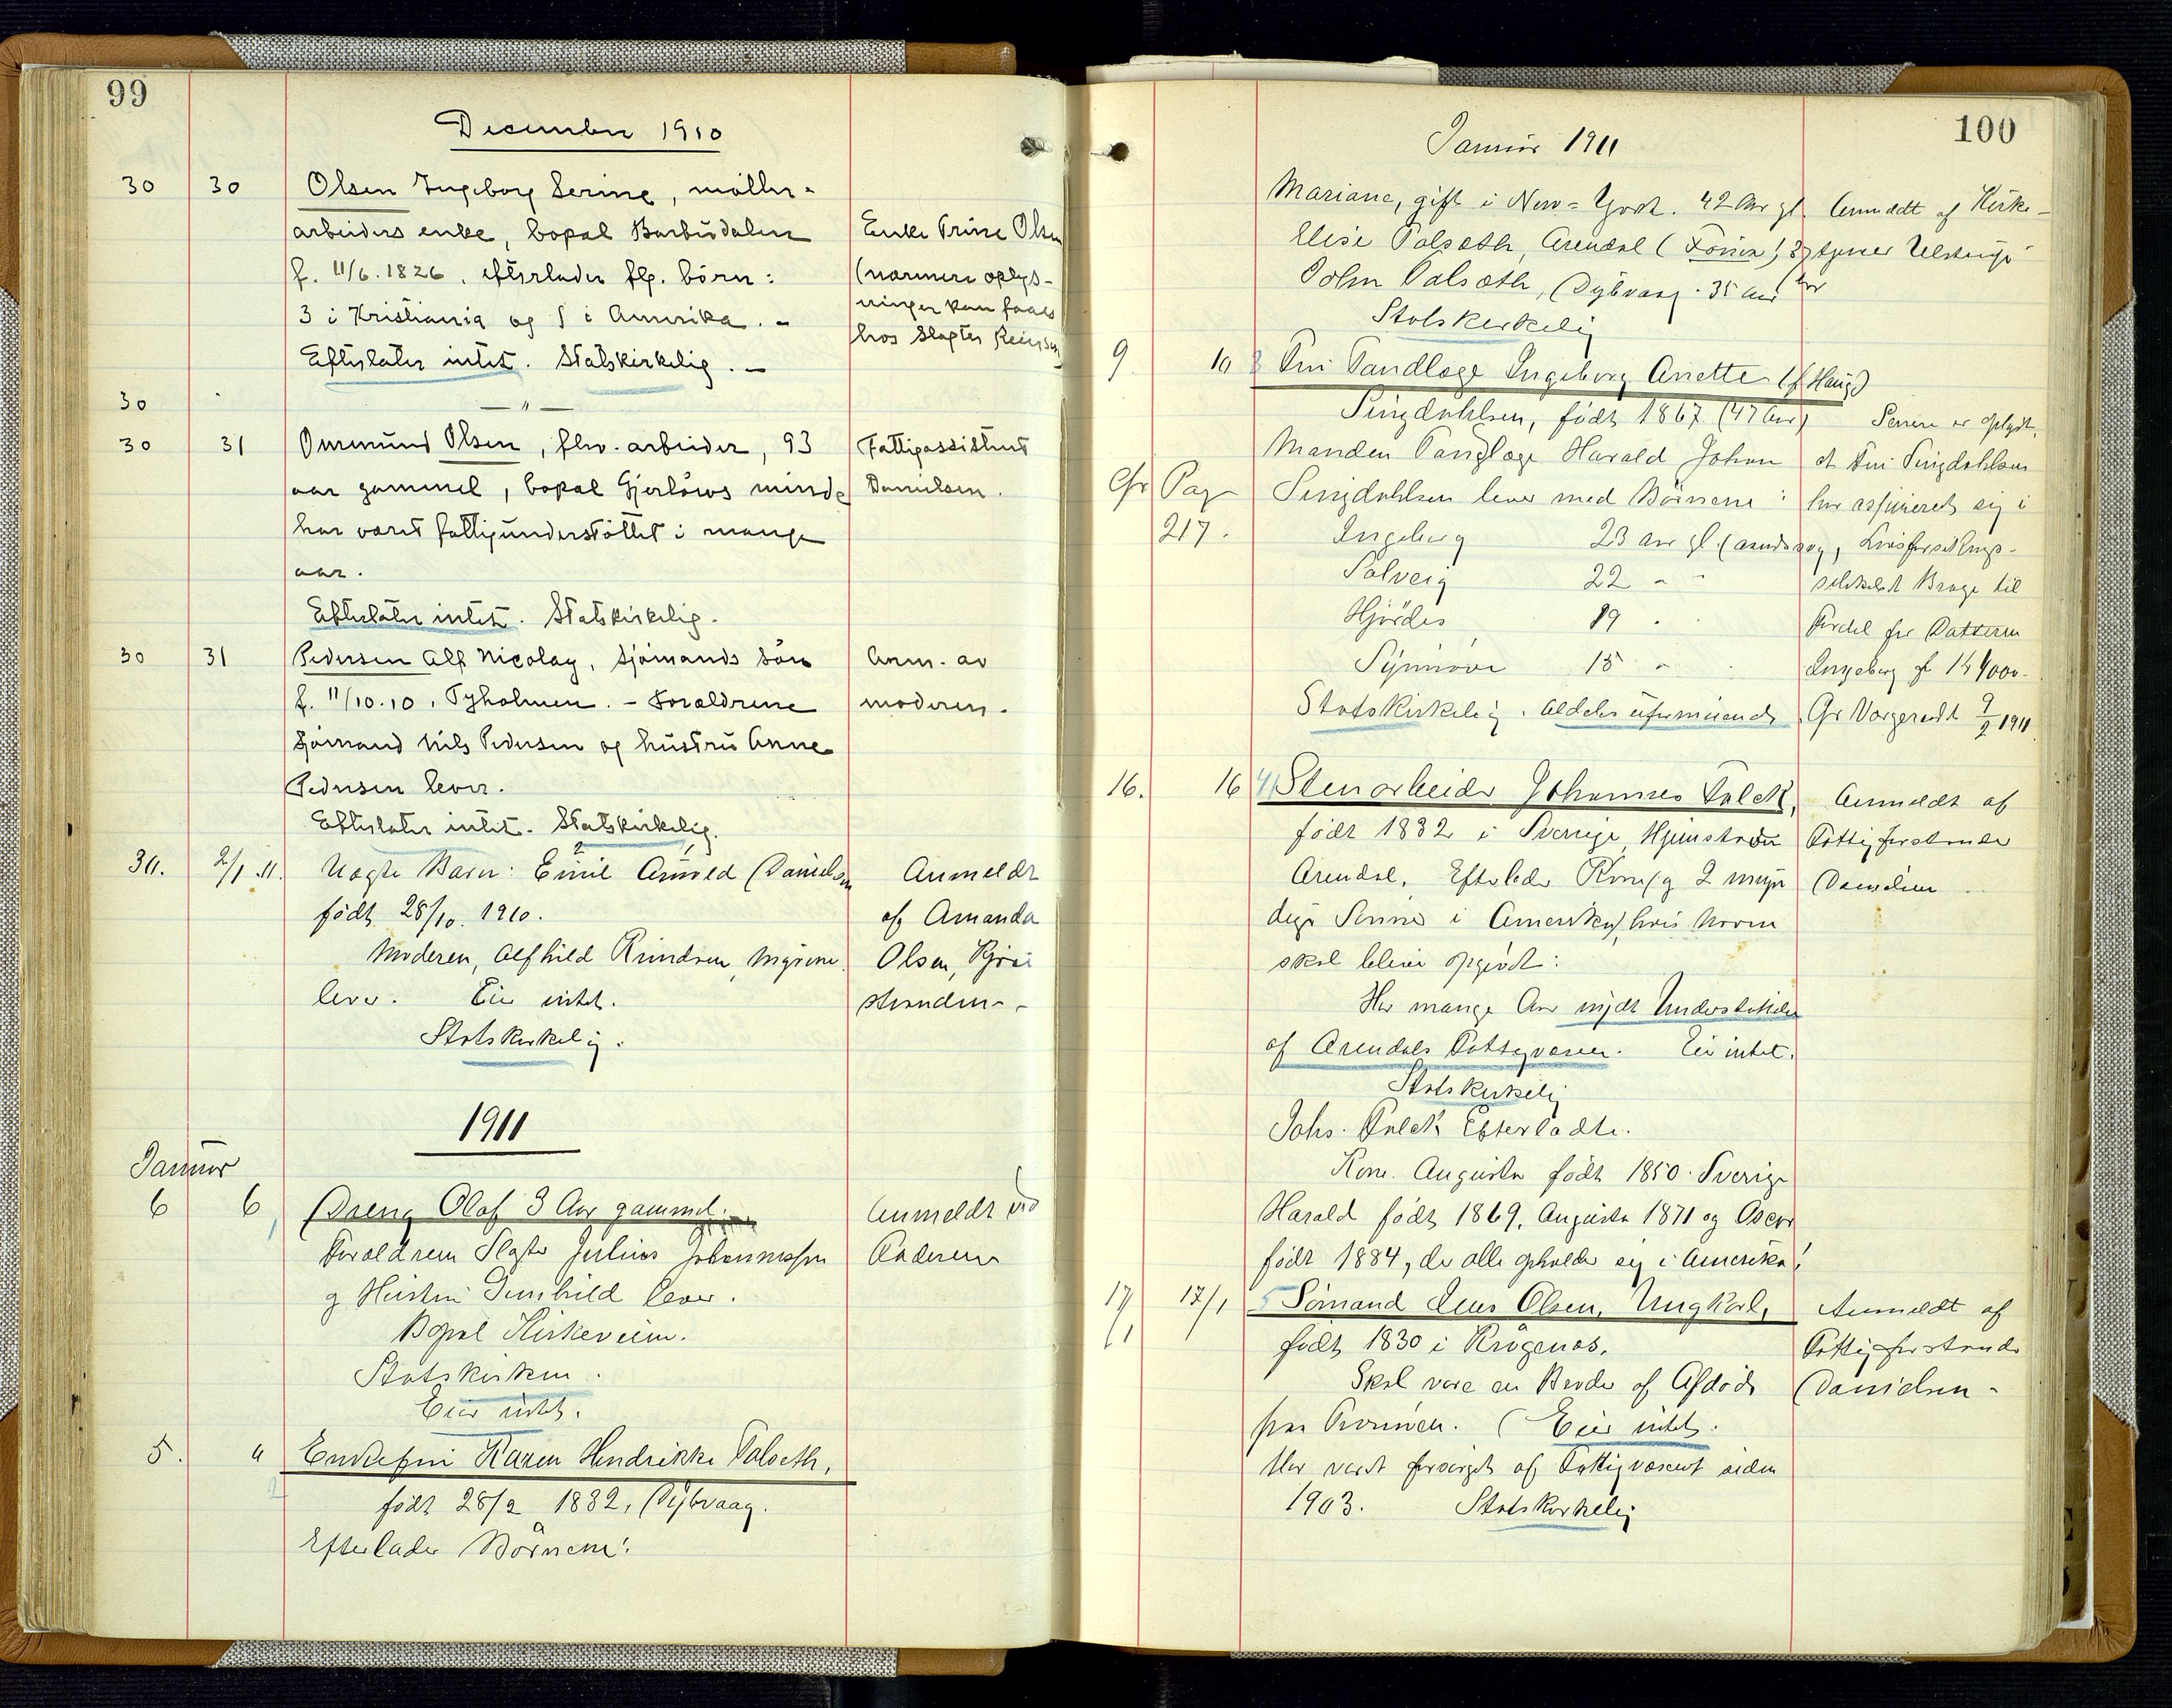 99
December 1910
30 30 Olsen Ingeborg Serine, möller-
arbeiders enke, bopæl Barbudalen
f. 11/6. 1826, efterlader flg. börn:
3 i Kristiania og 1 i Amerika. -
Efterlater intet. Statskirkelig. -
Enke Trine Olsen
(nærmere oplys-
ninger kan faaes
hos Slagter
30 - " -
30 31 Omund Olsen, fhv. arbeider, 93
aar gammel, bopæl Gjerlöws minde
har været fattigunderstöttet i mange
aar.
Efterlater intet. Statskirkelig.
Fattigassistent
Danielsen.
30 31 Pedersen Alf Nicolay, sjömands sön
f. 11/10.10, Tyholmen. - Forældrene
Sjömand Nils Pedersen og hustru Anne
Pedersen lever.
Efterlater intet. Statskirkelig.
Anm. av
moderen.
30. 2/1 11. Uægte Barn: Emil Arnold Danielsen
født 28/10. 1910.
Moderen, Alfhild
lever. Eier intet.
Statskirkelig.
Anmeldt
af Amanda
Olsen,
stranden -
1911
Januar
6 6 1 Dreng Olaf 3 Aar gammel.
Forældrene Slagter Julius Johannessen
og Hustru Gunhild lever.
Bopæl Kirkeveien.
Statskirken.
Eier intet.
Anmeldt ved
Faderen
5. " 2 Enkefru Karen Hendrikke Falseth,
født 28/2 1832, Dybvaag.
Efterlader Børnene:
100
Januar 1911
Mariane, gift i New-York. 42 Aar gl.
Elise Falseth, Arendal (Frøken) 37
John Falseth, Dybvaag. 35 Aar
Statskirkelig
Anmeldt af Kirke-
tjener Ulstrup
9. 10 3 Fru Tandlæge Ingeborg Anette (f. Haug)
Singdahlsen, født 1867 (47 Aar)
Manden Tandlæge Harald Johan
Singdahlsen lever med Børnene:
Ingeborg 23 aar gl.
Solveig 22 " "
Hjördis 19 "
Synnøve 15 "
Statskirkelig. Aldeles uformuende
Cfr Pag
217.
Senere er oplyst,
at Fru Singdahlsen
har assureret sig i
Livsforsikrings-
selskabet Brage til
Fordel for Datteren
Ingeborg
16. 16 4 Stenarbeider Johannes Falck,
født 1832 i Sverige, Hjemstavn
Arendal. Efterlader Kone og 2 myn
dige Sønner i Amerika, hvis Navne
skal blive opgivet:
Har mange Aar nydt Understøttelse
af Arendals Fattigvæsen. Eier intet.
Statskirkelig
Johs. Falcks Efterladte.
Kone. Augusta født 1850. Sverige
Harald født 1869, Augusta 1871 og Oscar
født 1884, der alle opholder sig i Amerika!
Anmeldt af
Fattigforstander
Danielsen
17/1 17/1 5 Sömand Jens Olsen, Ungkarl,
født 1830 i Krögenæs.
Skal være en Broder af Afdøde
paa Tromøen. Eier intet.
Har været forsørget af Fattigvæsenet siden
1903. Statskirkelig
Anmeldt af
Fattigforstander
Danielsen -